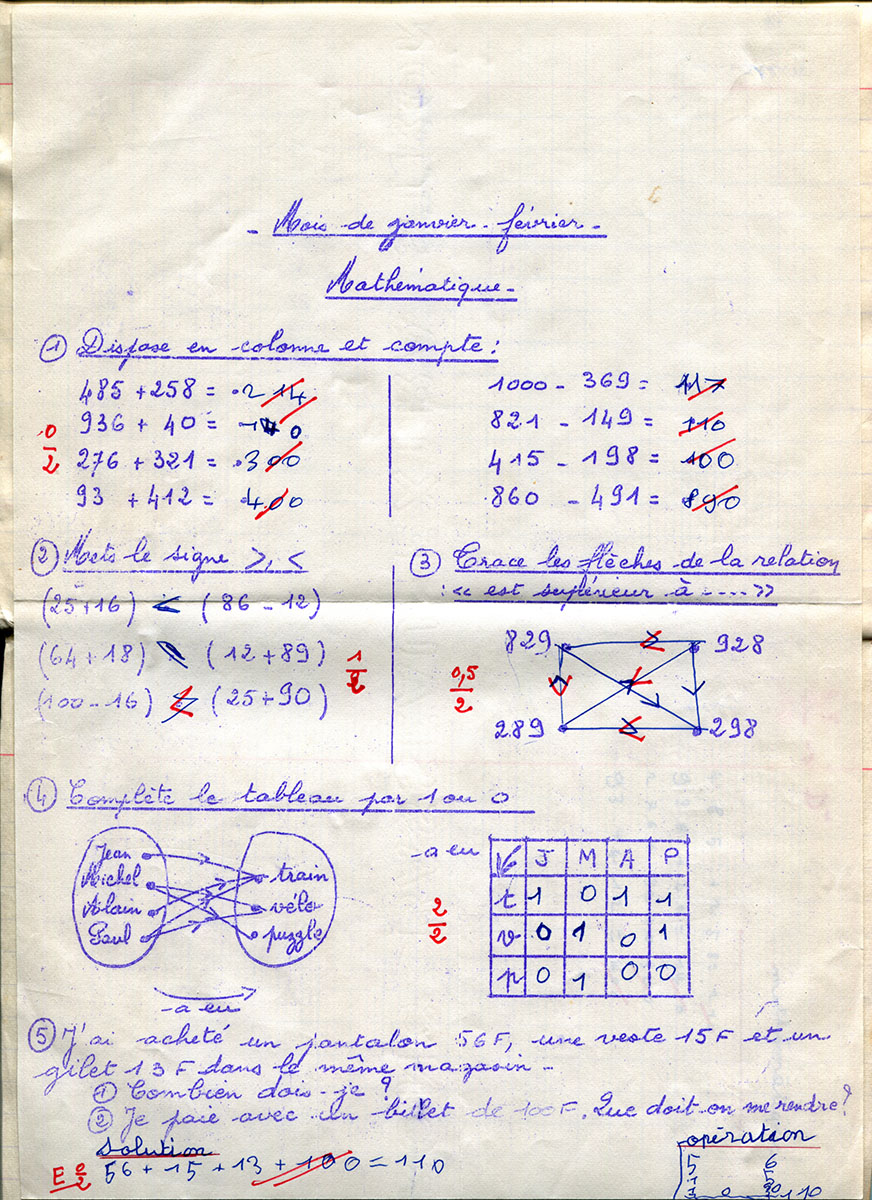 - Mois de janvier - février -
Mathématique -
① Dispose en colonne et compte :
485 + 258 = 214
936 + 40 =
276 + 321 = 300
93 + 412 = 400
0/2
1000 - 369 = 117
821 - 149 = 110
415 - 198 = 100
860 - 491 = 890
② Mets le signe >, <
(25+16) < (86 - 12)
(64+18) (12+89)
(100-16) (25+90)
1/2
③ Trace les flèches de la relation
: << est supérieur à ---- >>
829 928
289 298
0,5/2
④ Complète le tableau par 1 ou 0
Jean
Michel
Alain
Paul
train
vélo
puzzle
- a eu
- a eu
J M A P
t 1 0 1 1
v 0 1 0 1
p 0 1 0 0
2/2
⑤ J'ai acheté un pantalon 56F, une veste 15F et un
gilet 13F dans le même magasin -
① Combien dois-je ?
② Je paie avec un billet de 100F. Que doit on me rendre ?
Solution
E 0/2 56 + 15 + 13 + 100 = 110
opération
5 6